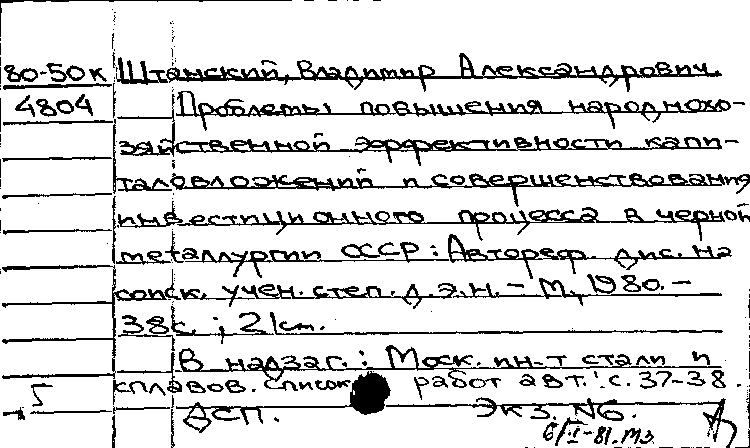 80-50к Штанский, Владимир Александрович.
4804 Проблемы повышения народнохо-
зяйственной эффективности капи-
таловложений и совершенствования
инвестиционного процесса в черной
металлургии СССР: Автореф. дис. на
соиск. учен. степ. д.э.н. – М., 1980. –
38с.; 21см.
В надзаг.: Моск. ин-т стали и
сплавов. Список работ авт.: с. 37-38.
ДСП. Экз. №6.
6/I-81. Мз.